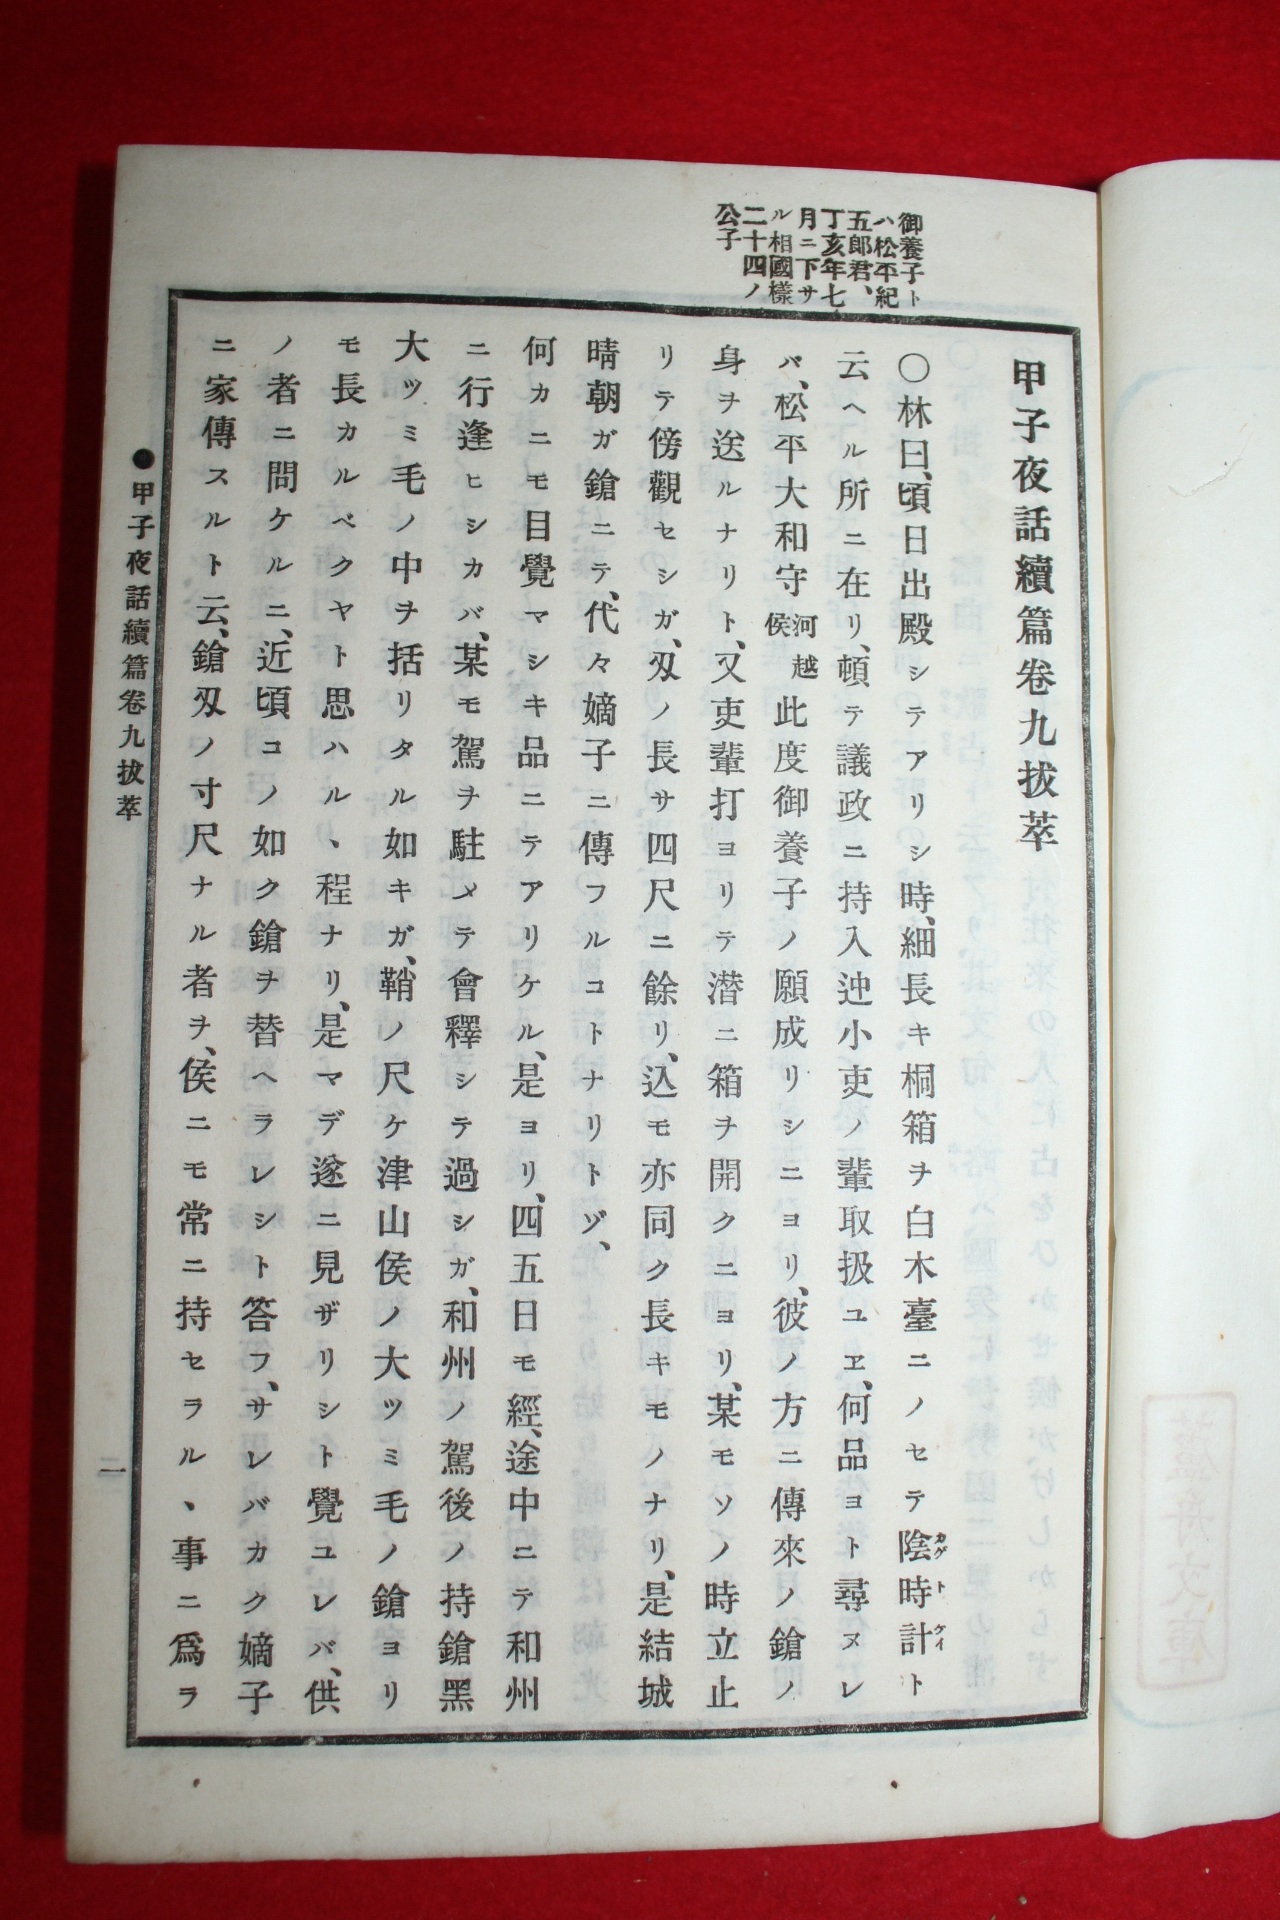 御養子ト
ハ松平紀
五郎君、
丁亥年七
月ニ下サ
ル相國樣
二十四ノ
公子
甲子夜話續篇卷九拔萃
〇林曰、頃日出殿シテアリシ時、細長キ桐箱ヲ白木臺ニノセテ陰時計ト
カゲトケイ
云ヘル所ニ在リ、頓テ議政ニ持入迚小吏ノ輩取扱ユヱ、何品ヨト尋ヌレ
バ、松平大和守河越侯此度御養子ノ願成リシニヨリ、彼ノ方ニ傳來ノ鎗ノ
身ヲ送ルナリト、又吏輩打ヨリテ潛ニ箱ヲ開クニヨリ、某モソノ時立止
リテ傍觀セシガ、刄ノ長サ四尺ニ餘リ、込モ亦同ク長キモノナリ、是結城
晴朝ガ鎗ニテ、代々嫡子ニ傳フルコトナリトゾ、
何カニモ目覺マシキ品ニテアリケル、是ヨリ、四五日モ經、途中ニテ和州
ニ行逢ヒシカバ、某モ駕ヲ駐メテ會釋シテ過シガ、和州ノ駕後ノ持鎗黑
大ツミ毛ノ中ヲ括リタル如キガ、鞘ノ尺ケ津山侯ノ大ツミ毛ノ鎗ヨリ
モ長カルベクヤト思ハル、程ナリ、是マデ遂ニ見ザリシト覺ユレバ、供
ノ者ニ問ケルニ、近頃コノ如ク鎗ヲ替ヘラレシト答フ、サレバカク嫡子
ニ家傳スルト云、鎗刄ノ寸尺ナル者ヲ、侯ニモ常ニ持セラル、事ニ爲ラ
●甲子夜話續篇卷九拔萃
二